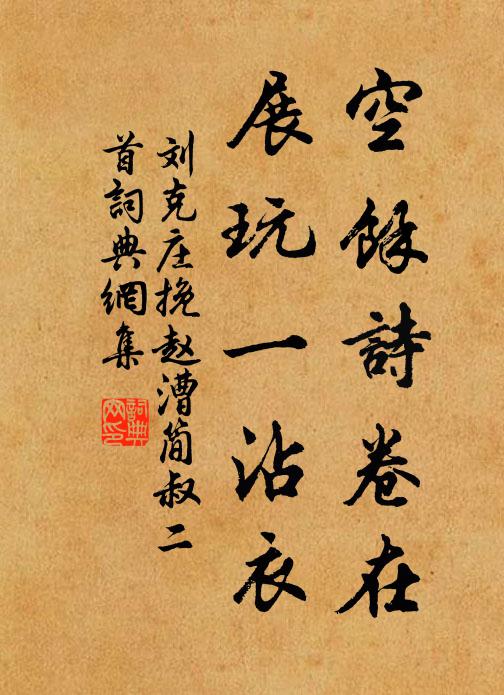 空餘詩卷在
展玩一沾衣
刘克庄挽赵漕简叔二
首詞典網集
詞典
网印